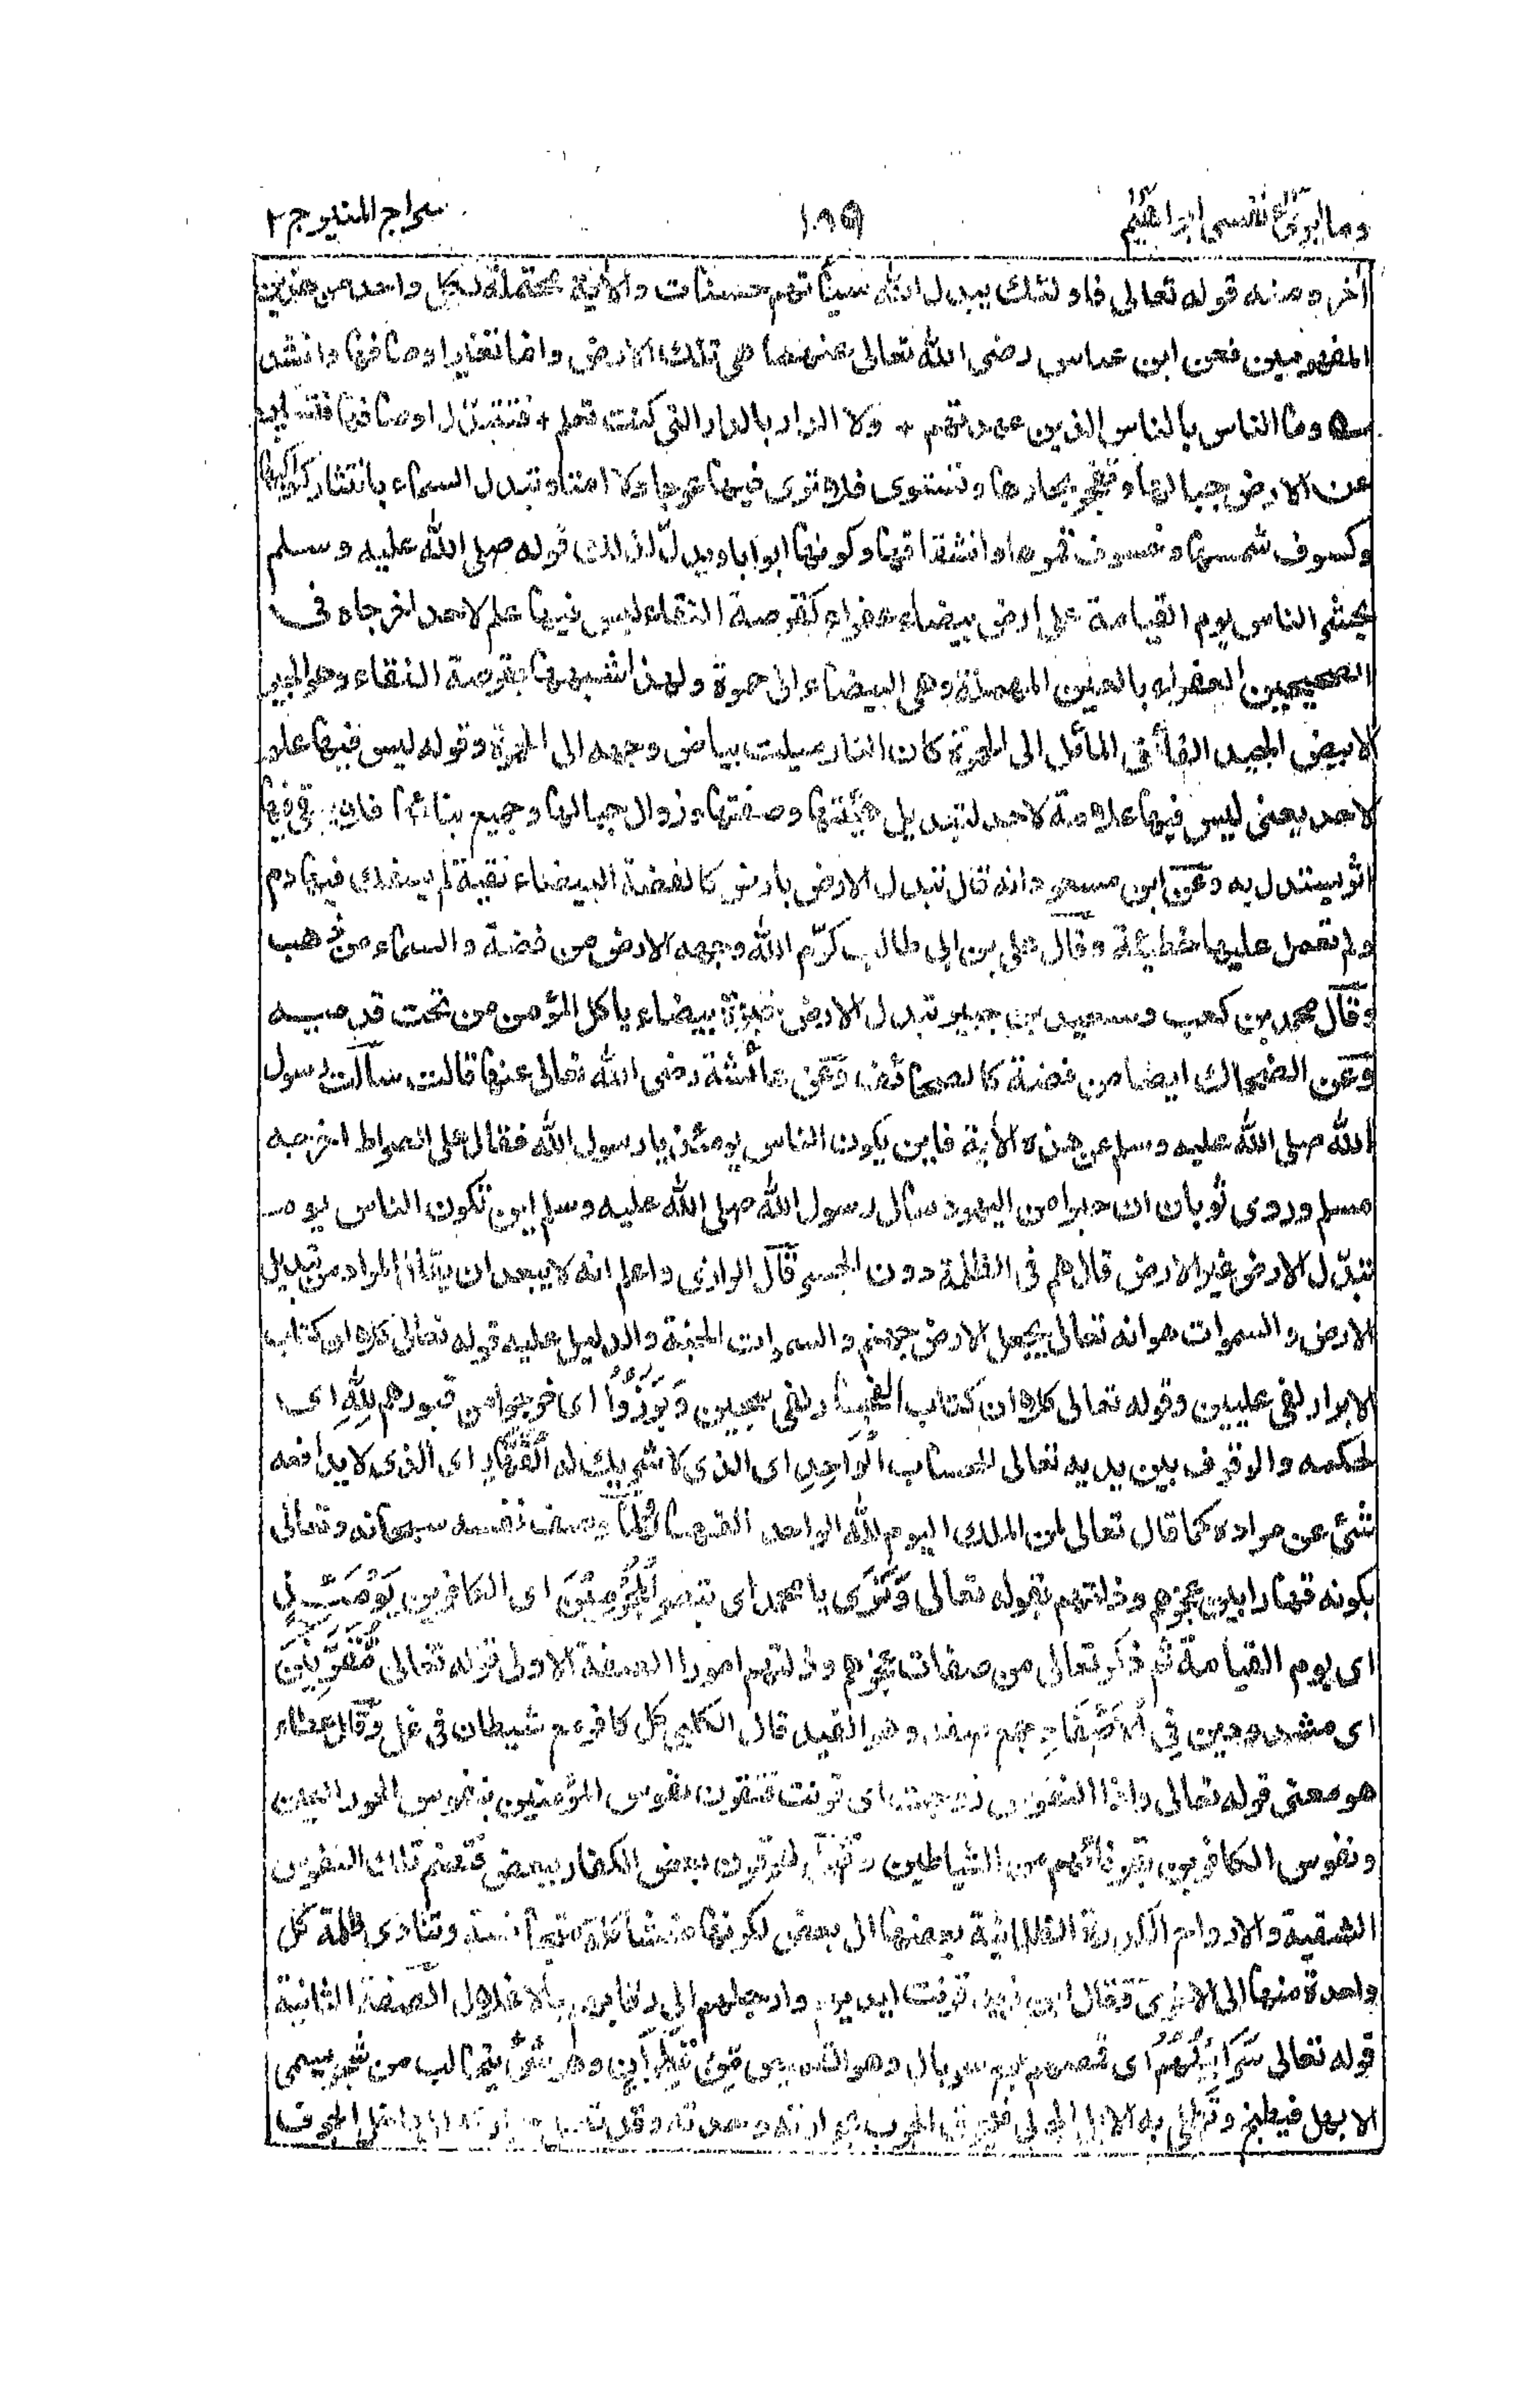 وما ابرئ نفسى ابراهيم
١٨٩
سراج المنير ج ٢
أخر ومنه قوله تعالى فاولئك يبدل الله سيأتهم حسنات والأية محتملة لكل واحد من هذين
المفهومين فعن ابن عباس رضى الله تعالى عنهما هى تلك الارض وانما تغير اوصافها وانشد
وما الناس بالناس الذين عهدتهم + ولا الدار بالدار التى كنت تعلم + فتتبدّل اوصافها فتسير
عن الارض جبالها وتفجر بحارها وتستوى فلا ترى فيها عوجا ولا امتا وتبدل السماء بانتثار كواكبها
وكسوف شمسها وخسوف قمرها وانشقاقها وكونها ابوابا ويدلّ لذلك قوله صلى الله عليه وسلم
يحشر الناس يوم القيامة على ارض بيضاء عفراء كقرصة النقاء ليس فيها علم لاحد اخرجاه فى
الصحيحين العفراء بالعين المهملة وهى البيضاء الى حمرة ولهذا شبهها بقرصة النقاء وهو الخبز
الابيض الجيد الفائق المائل الى الحمرة كان النار ميلت بياض وجهه الى الحمرة وقوله ليس فيها علم
لاحد يعنى ليس فيها علامة لاحد لتبديل هيئتها وصفتها وزوال جبالها وجميع بنائها فلا يبقى فيها
اثر يستدل به وعن ابن مسعود انه قال تبدل الارض بارض كالفضة البيضاء نقية لم يسفك فيها دم
ولم تعمل عليها خطيئة وقال على بن ابى طالب كرّم الله وجهه الارض من فضة والسماء من ذهب
وقال محمد بن كعب وسعيد بن جبير تبدل الارض خبزة بيضاء ياكل المؤمن من تحت قدميه
وعن الضحاك ايضا من فضة كالصحائف وعن عائشة رضى الله تعالى عنها قالت سالت رسول
الله صلى الله عليه وسلم عن هذه الأية فاين يكون الناس يومئذ يا رسول الله فقال على الصراط اخرجه
مسلم وروى ثوبان ان حبرا من اليهود سال رسول الله صلى الله عليه وسلم اين تكون الناس يوم
تبدّل الارض غير الارض قال هم فى الظلمة دون الجسر قال الرازى واعلم انه لا يبعد ان يقال المراد من تبديل
الارض والسموات هو انه تعالى يجعل الارض جهنم والسموات الجنة والدليل عليه قوله تعالى كلا ان كتاب
الابرار لفى عليين وقوله تعالى كلا ان كتاب الفجار لفى سجين وَبَرَزُوْا اى خرجوا من قبورهم لِلّٰهِ اى
لحكمه والوقوف بين يديه تعالى للحساب الْوَاحِدِ اى الذى لا شريك له الْقَهَّارِ اى الذى لا يدافعه
شئ عن مراده كما قال تعالى لمن الملك اليوم لله الواحد القهار ولما وصف نفسه سبحانه وتعالى
بكونه قهارا بين عجزهم وذلتهم بقوله تعالى وَتَرَى يا محمد اى تبصر الْمُجْرِمِيْنَ اى الكافرين يَوْمَئِذٍ
اى يوم القيامة ثم ذكر تعالى من صفات عجزهم وذلتهم امورا الصفة الاولى قوله تعالى مُّقَرَّنِيْنَ
اى مشدودين فِى الْاَصْفَادِ جمع صفد وهو القيد قال الكلبى كل كافر مع شيطان فى غل وقال عطاء
هو معنى قوله تعالى واذا النفوس زوجت اى قرنت فتقرن نفوس المؤمنين بنفوس الحور العين
ونفوس الكافرين بقرنائهم من الشياطين وقيل يقرن بعض الكفار ببعض فتضم تلك النفوس
الشقية والارواح الكدرة الظلمانية بعضها الى بعض لكونها متشاكلة متجانسة وتنادى ظلمة كل
واحدة منها الى الاخرى وقال ابن زيد قرنت ايديهم وارجلهم الى رقابهم بالاغلال الصفة الثانية
قوله تعالى سَرَابِيْلُهُمْ اى قمصهم جمع سربال وهو القميص مِّنْ قَطِرَانٍ وهو شئ يتحالب من شجر يسمى
الابهل فيطبخ وتطلى به الابل الجربى فيحرق الجرب بحرارته وحدته وقد تصل حرارته الى داخل الجوف